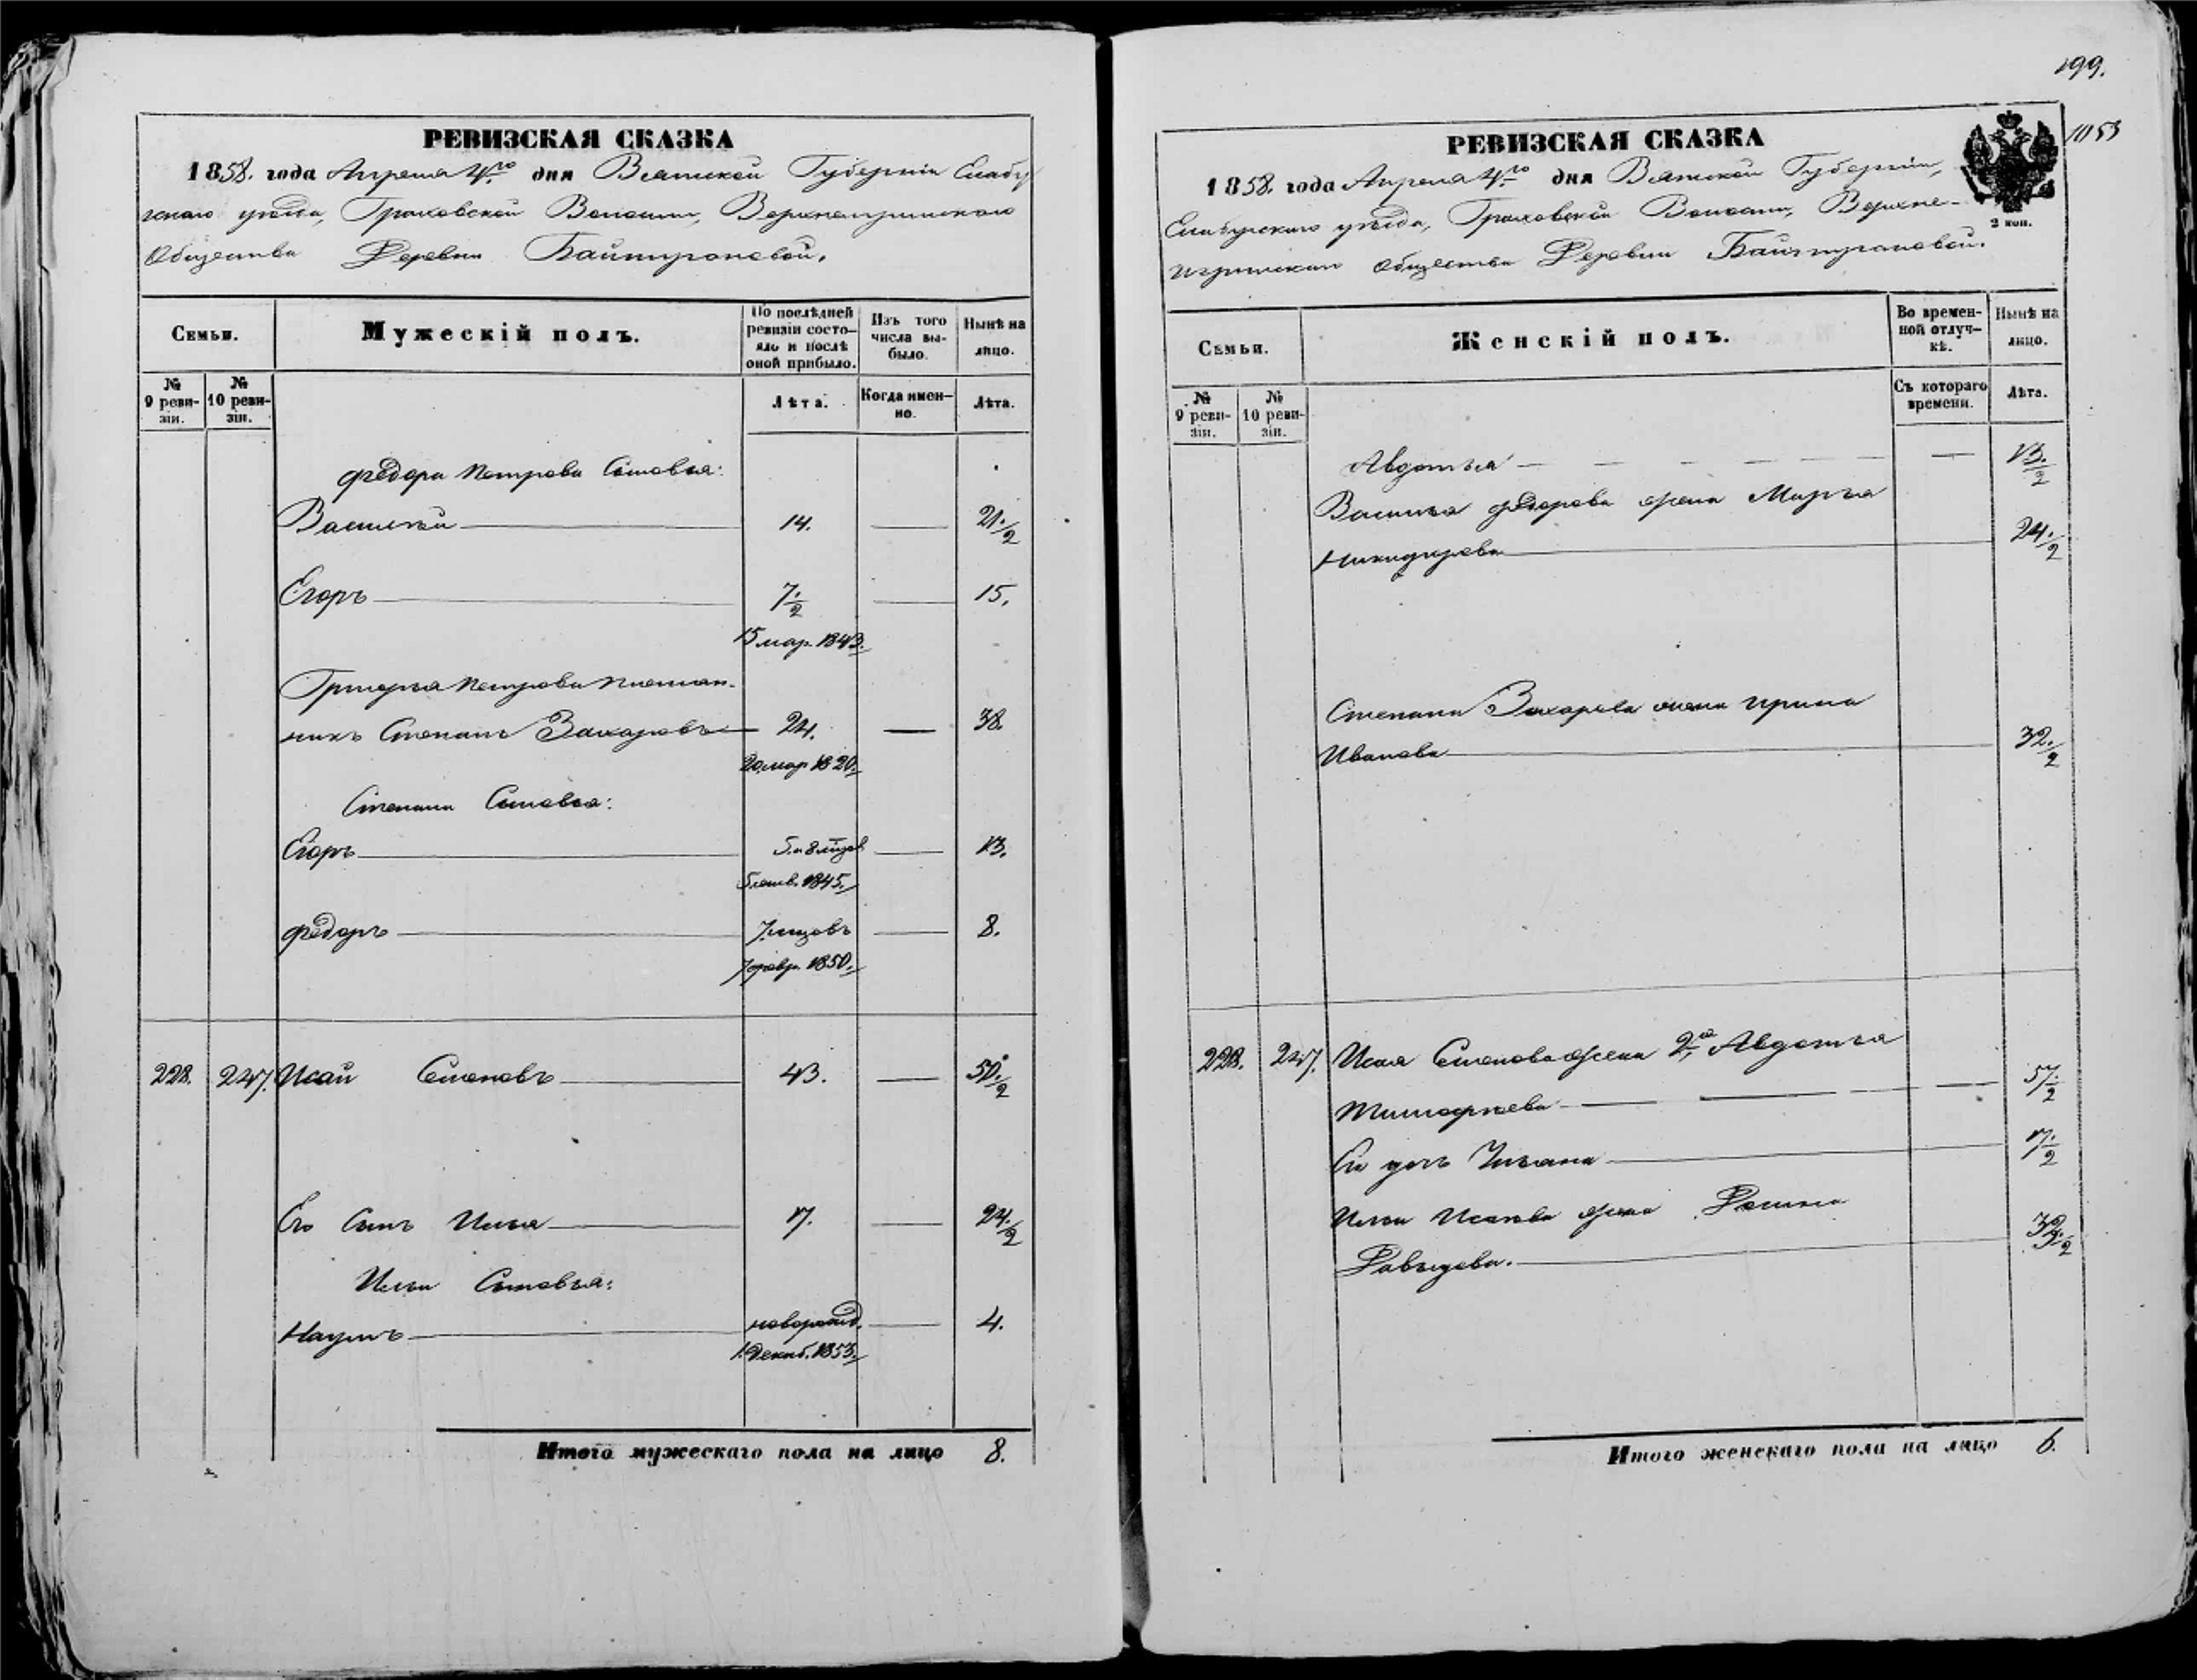 РЕВИЗСКАЯ СКАЗКА
1858. года Апреля 4го дня Вятской Губерніи Елабу
жскаго уѣзда, Граховской Волости,
Общества Деревни Баитугановой.
Семьи.
Мужескій полъ.
По послѣдней ревизіи состояло и послѣ оной прибыло.
Изъ того числа выбыло.
Нынѣ на лицо.
№ 9 ревизіи.
№ 10 ревизіи.
Лѣта.
Когда именно.
Лѣта.
Федора Петрова Сыновья:
Василій 14. 21./2
Егоръ 7./2 15.
15 мар. 1843.
Григорья Петрова племян-
никъ Степанъ Захаровъ 24. 38.
20 мар 1820.
Степана Сыновья:
Егоръ 5. и 8 мѣцов 13.
1845.
Федоръ 7 мцовъ 8.
7 февр. 1850.
228. 247. Исай Семеновъ 43. 50./2
Его Сынъ Илья 17. 24./2
Ильи Сыновья:
Наумъ новорожд. 4.
1. Декаб. 1853.
Итого мужескаго пола на лицо 8.
199.
1053
РЕВИЗСКАЯ СКАЗКА
2 коп.
1858. года Апреля 4го дня Вятской Губерніи,
Елабужскаго уѣзда, Граховской Волости, Верхне-
Общества Деревни Байтугановой.
Семьи.
Женскій полъ.
Во временной отлучкѣ.
Нынѣ на лицо.
№ 9 ревизіи.
№ 10 ревизіи.
Съ котораго времени.
Лѣта.
Авдотья 13./2
Василья Федорова жена Марья
Никифорова 24./2
Степана Захарова жена Ирина
Иванова 32./2
228. 247. Исая Семенова жена 2я Авдотья
Тимофеева 57./2
Его дочь Ульяна 17./2
Ильи Исаева жена
Давыдова.
Итого женскаго пола на лицо 6.